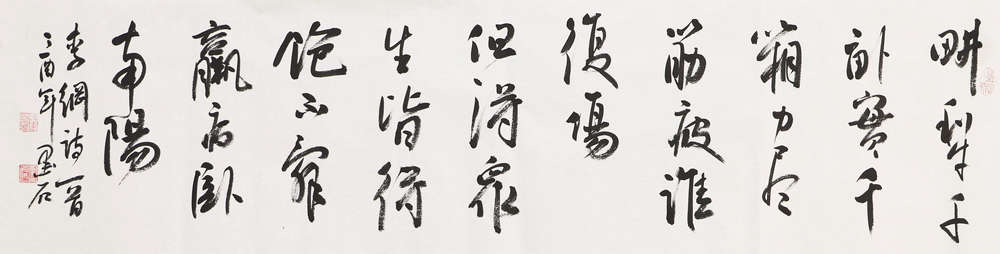 畊犁千
畝實千
箱力尽
筋疲誰
復場
但得眾
生皆得
飽不辭
羸病臥
南陽
李綱詩一首
丁酉年墨石